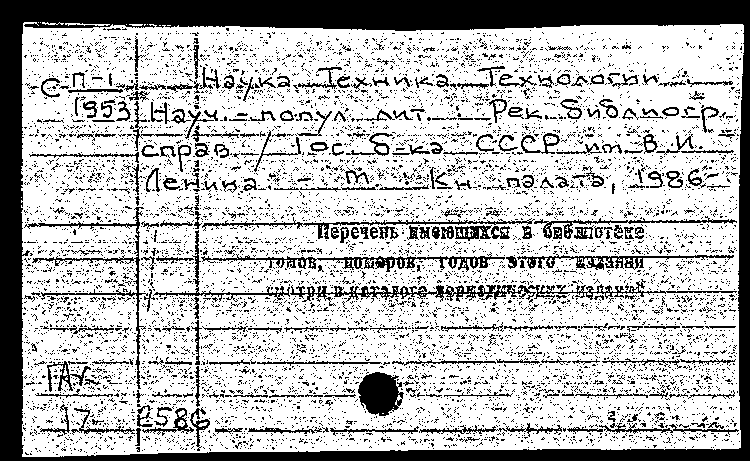 С П-1 Наука Техника Технологии :
1953 Науч.-попул. лит. : Рек. библиогр.
справ. / Гос. б-ка СССР им. В.И.
Ленина. - М. : Кн. палата, 1986-
Перечень имеющихся в библиотеке
томов, номеров, годов этого издания
смотри в каталоге периодических изданий
17 2586